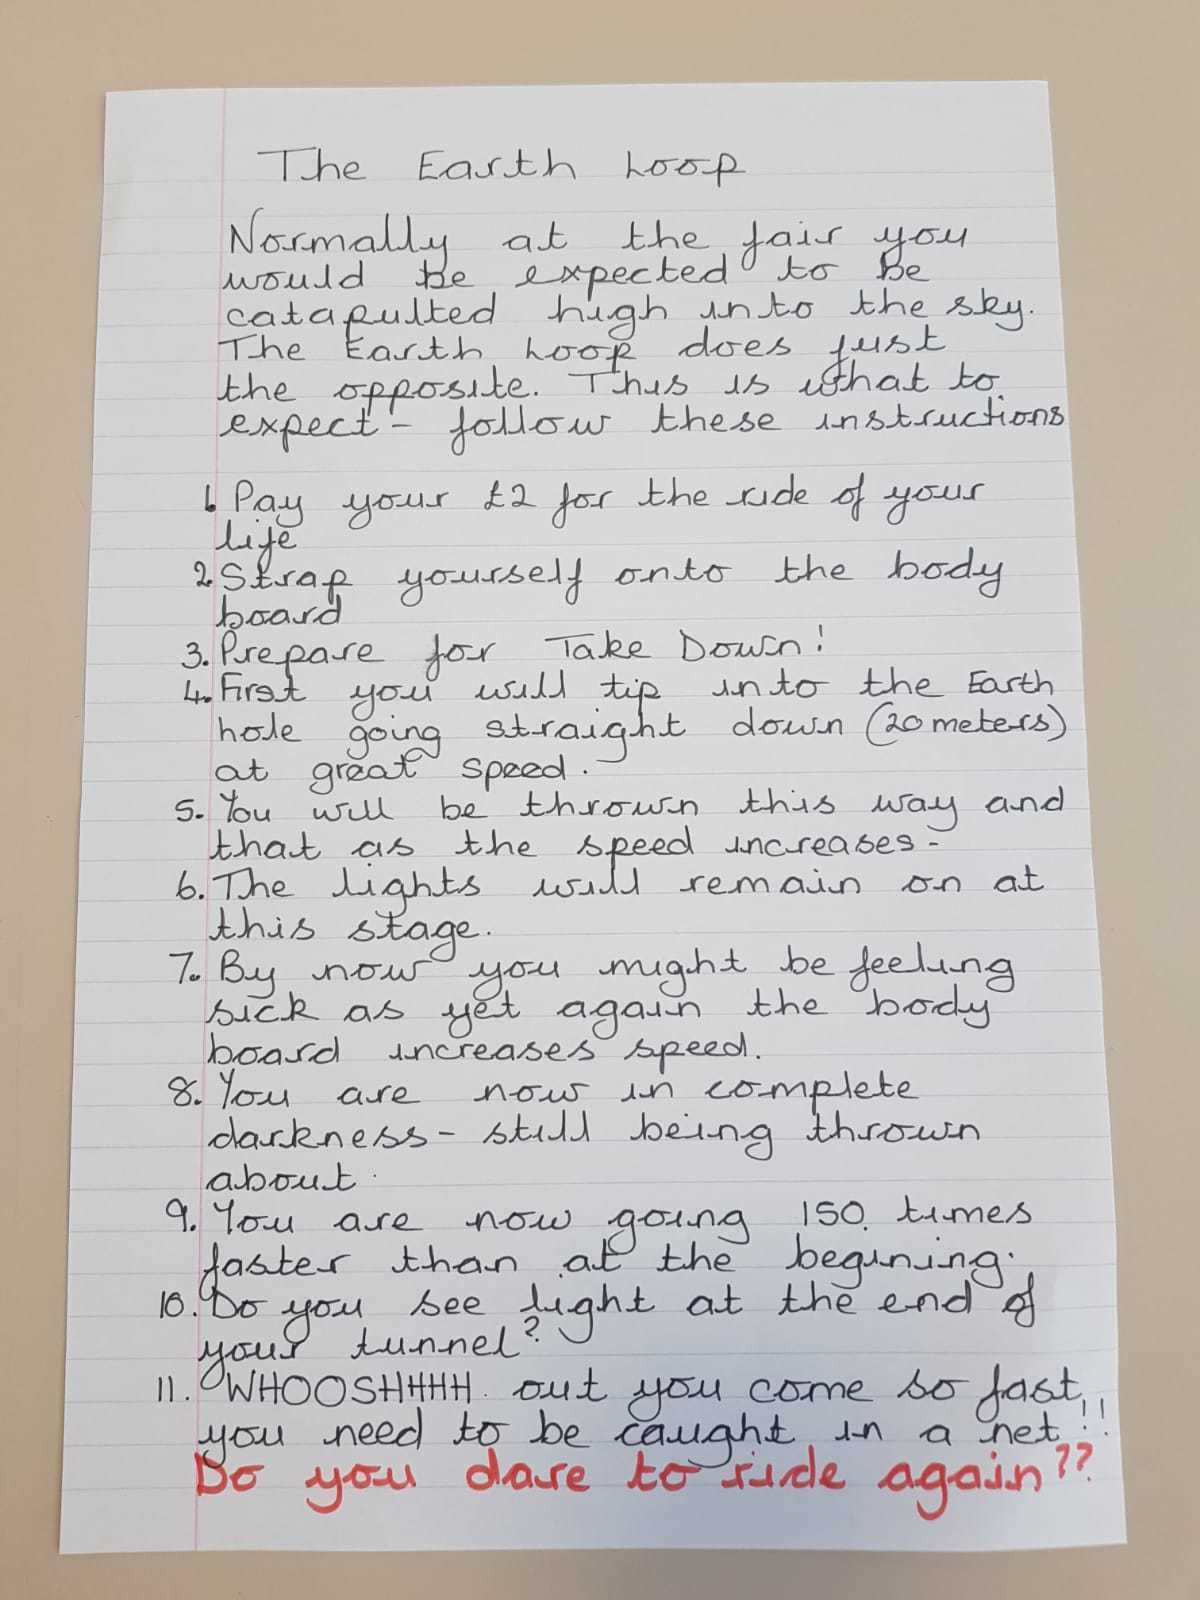 The Earth Loop
Normally at the fair you
would be expected to be
catapulted high into the sky.
The Earth Loop does just
the opposite. This is what to
expect - follow these instructions
1. Pay your £2 for the ride of your
life
2. Strap yourself onto the body
board
3. Prepare for Take Down!
4. First you will tip into the Earth
hole going straight down (20 meters)
at great speed.
5. You will be thrown this way and
that as the speed increases -
6. The lights will remain on at
this stage.
7. By now you might be feeling
sick as yet again the body
board increases speed.
8. You are now in complete
darkness - still being thrown
about.
9. You are now going 150 times
faster than at the begining.
10. Do you see light at the end of
your tunnel?
11. WHOOSHHHH out you come so fast,
you need to be caught in a net!!
Do you dare to ride again??